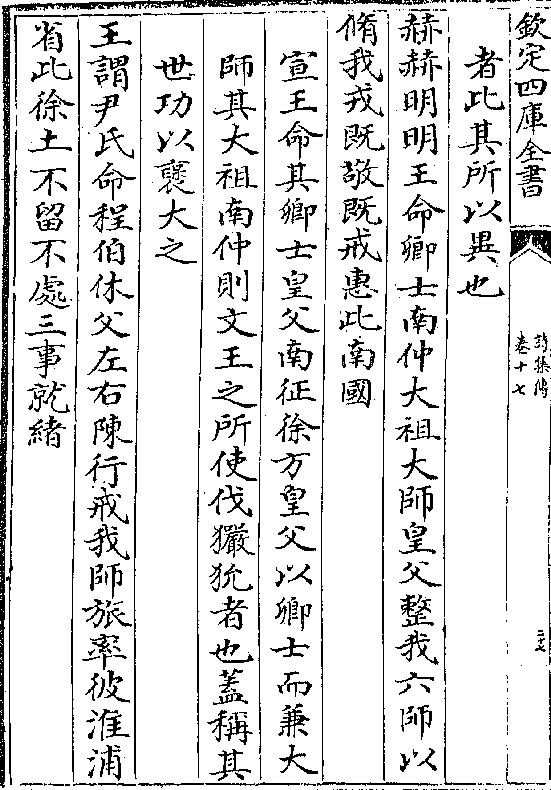 欽定四庫全書
詩集傳
卷十七
二七
者此其所以異也
赫赫明明王命卿士南仲大祖大師皇父整我六師以
脩我戎既敬既戒惠此南國
宣王命其卿士皇父南征徐方皇父以卿士而兼大
師其大祖南仲則文王之所使伐玁狁者也蓋稱其
世功以襃大之
王謂尹氏命程伯休父左右陳行戒我師旅率彼淮浦
省此徐土不留不處三事就緒